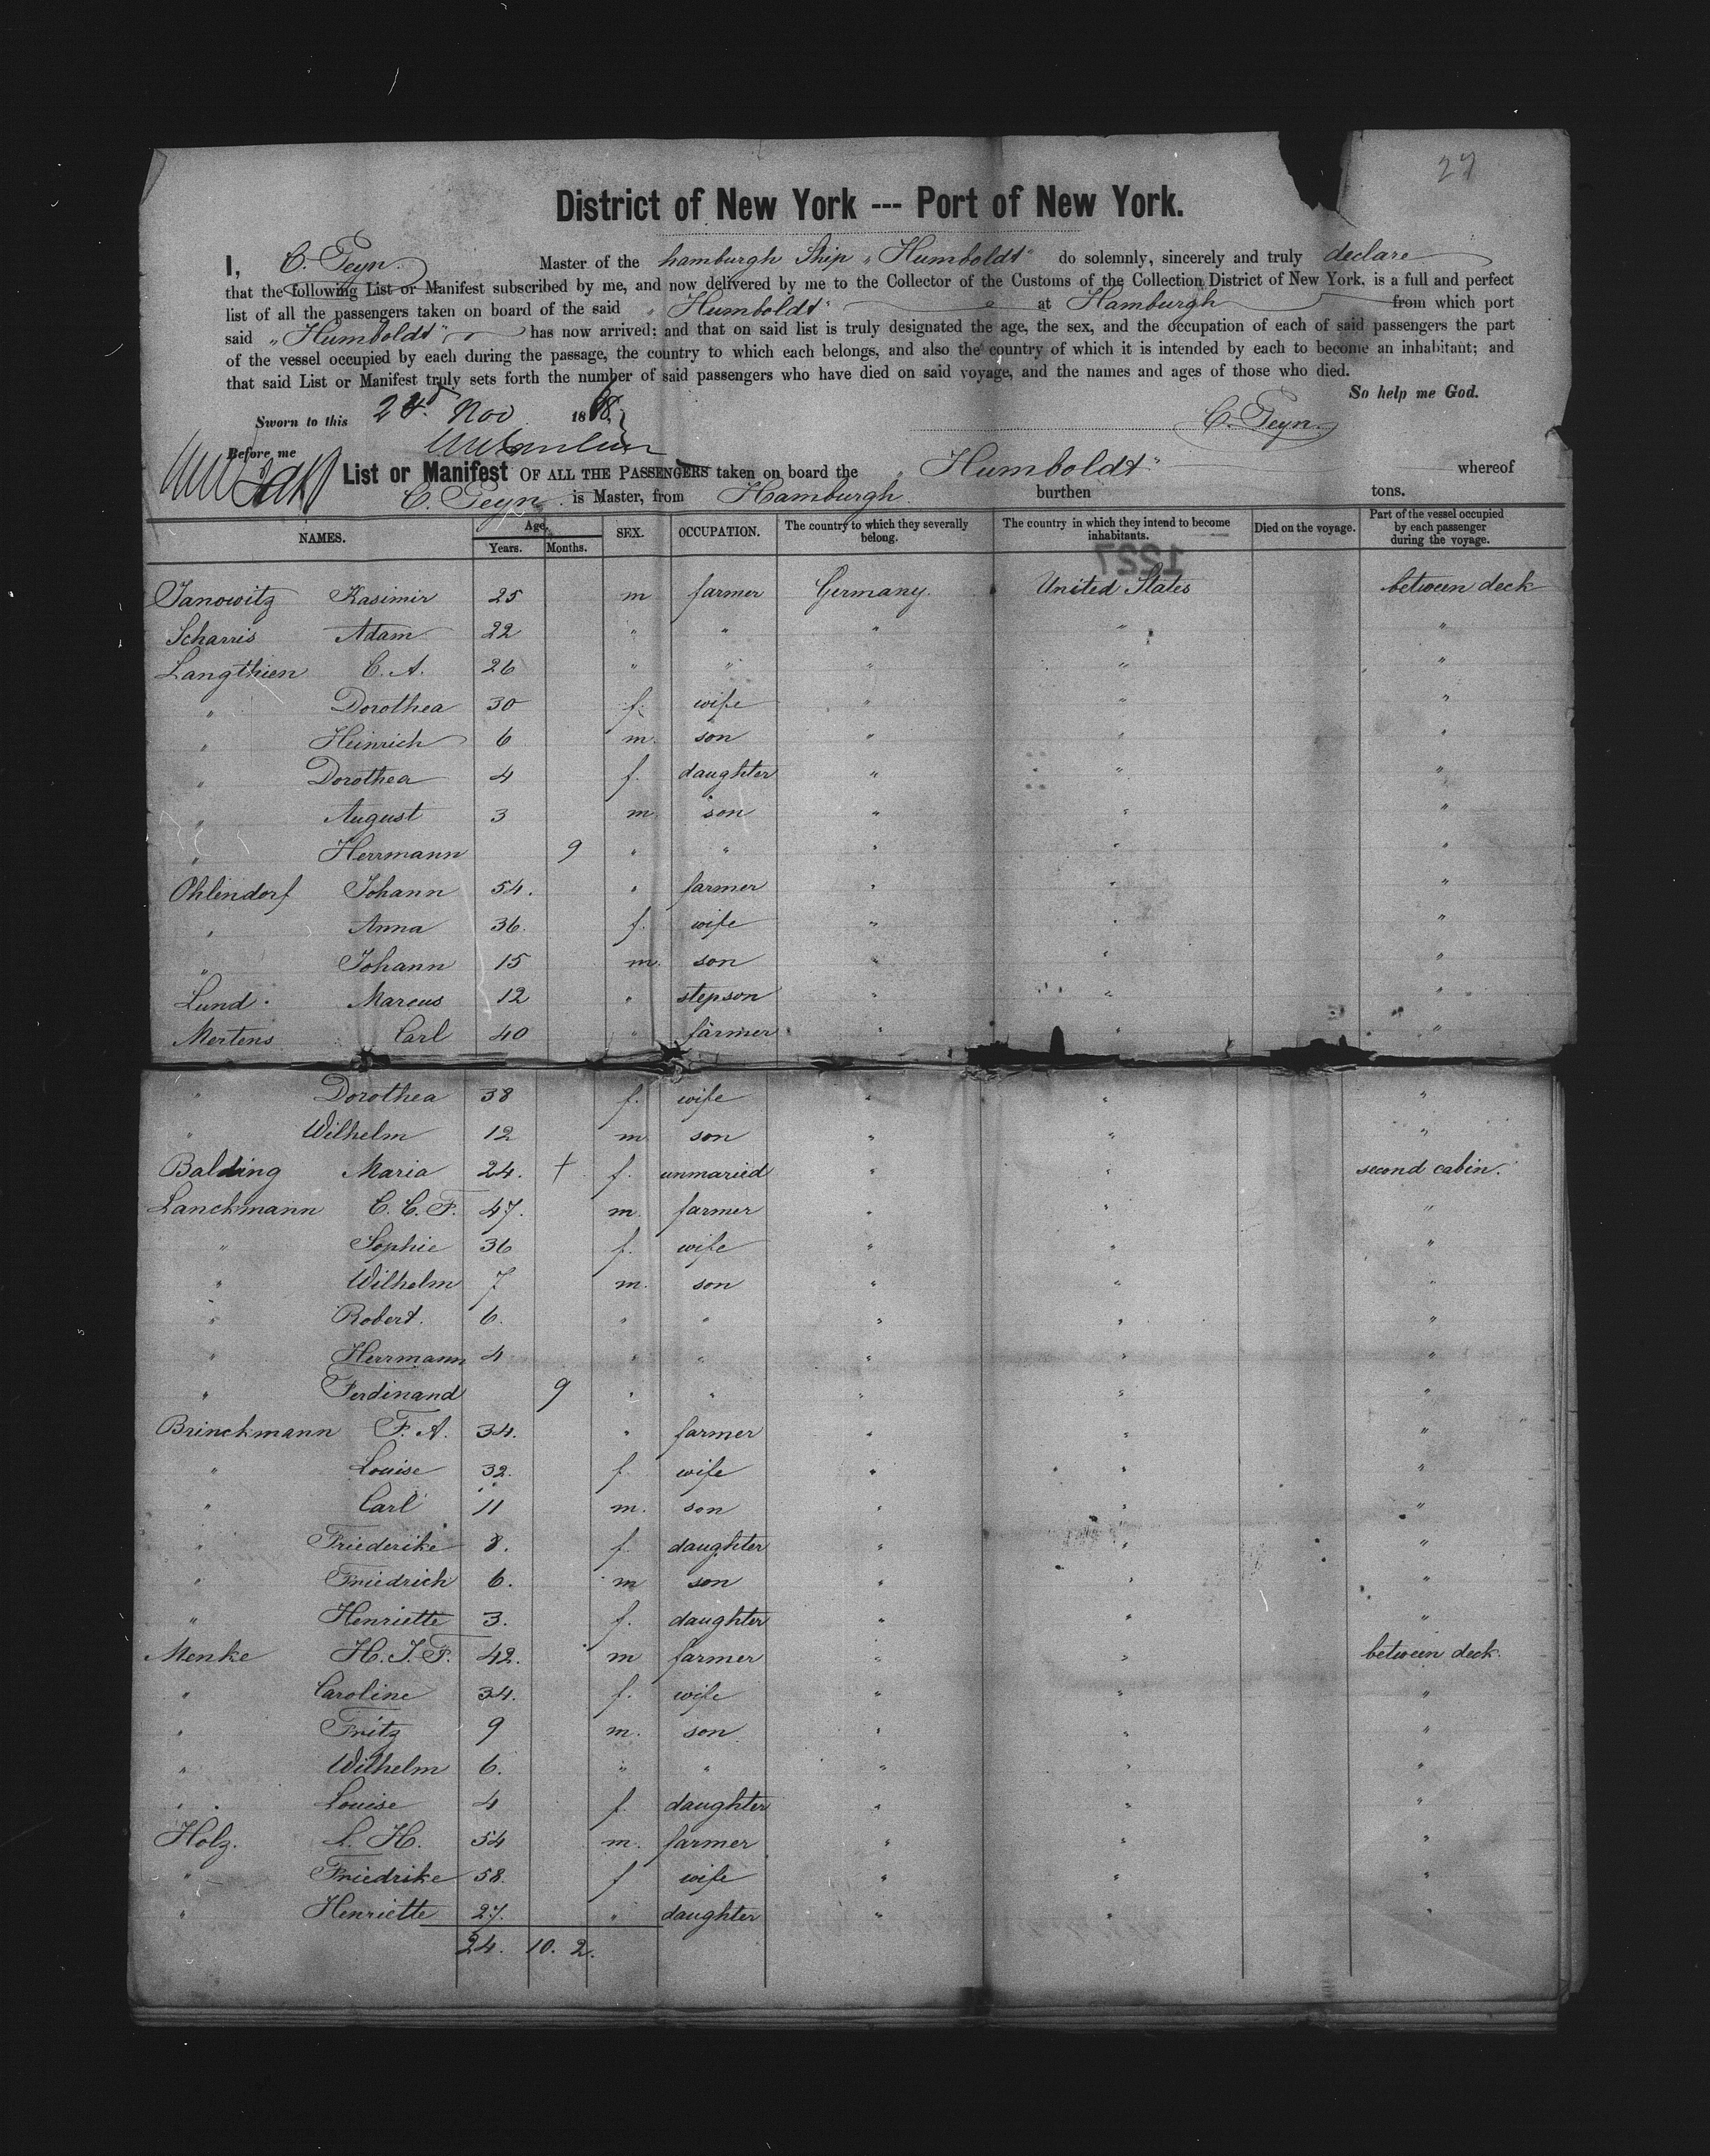 27
District of New York --- Port of New York.
I, C. Peyn. Master of the hamburgh Ship „Humboldt" do solemnly, sincerely and truly declare
that the following List or Manifest subscribed by me, and now delivered by me to the Collector of the Customs of the Collection District of New York, is a full and perfect
list of all the passengers taken on board of the said „Humboldt" at Hamburgh from which port
said „Humboldt" has now arrived: and that on said list is truly designated the age, the sex, and the occupation of each of said passengers the part
of the vessel occupied by each during the passage, the country to which each belongs, and also the country of which it is intended by each to become an inhabitant; and
that said List or Manifest truly sets forth the number of said passengers who have died on said voyage, and the names and ages of those who died.
So help me God.
Sworn to this 24. Nov 1868, C. Peyn.
Before me
List or Manifest OF ALL THE PASSENGERS taken on board the „Humboldt" whereof
C. Peyn. is Master, from Hamburgh. burthen tons.
NAMES. Age. Years. Months. SEX. OCCUPATION. The country to which they severally belong. The country in which they intend to become inhabitants. Died on the voyage. Part of the vessel occupied by each passenger during the voyage.
1227
Janowitz Kasimir 25 m farmer Germany. United States between deck
Scharris Adam 22 " " " " "
Langthien C. A. 26 " " " " "
" Dorothea 30 f. wife " " "
" Heinrich 6 m. son " " "
" Dorothea 4 f. daughter " " "
" August 3 m. son " " "
" Herrmann 9 " " " " "
Ohlendorf Johann 54. " farmer " " "
" Anna 36. f. wife " " "
" Johann 15 m. son " " "
Lund. Marcus 12 " stepson " " "
Mertens Carl 40 " farmer " " "
" Dorothea 38 f. wife " " "
" Wilhelm 12 m. son " " "
Balding Maria 24. + f. unmaried " " second cabin.
Lanckmann C. C. F. 47. m. farmer " " "
" Sophie 36 f. wife " " "
" Wilhelm 7 m. son " " "
" Robert. 6. " " " " "
" Herrmann 4 " " " " "
" Ferdinand 9 " " " " "
Brinckmann F. A. 34. " farmer " " "
" Louise 32. f. wife " " "
" Carl 11 m. son " " "
" Friederike 8. f. daughter " " "
" Friedrich 6. m son " " "
" Henriette 3. f. daughter " " "
Menke H. J. F. 42. m farmer " " between deck.
" Caroline 34. f. wife " " "
" Fritz 9 m. son " " "
" Wilhelm 6. " " " " "
" Louise 4 f. daughter " " "
Holz. L. H. 54 m. farmer " " "
" Friedrike 58. f wife " " "
" Henriette 27. " daughter " " "
24. 10. 2.